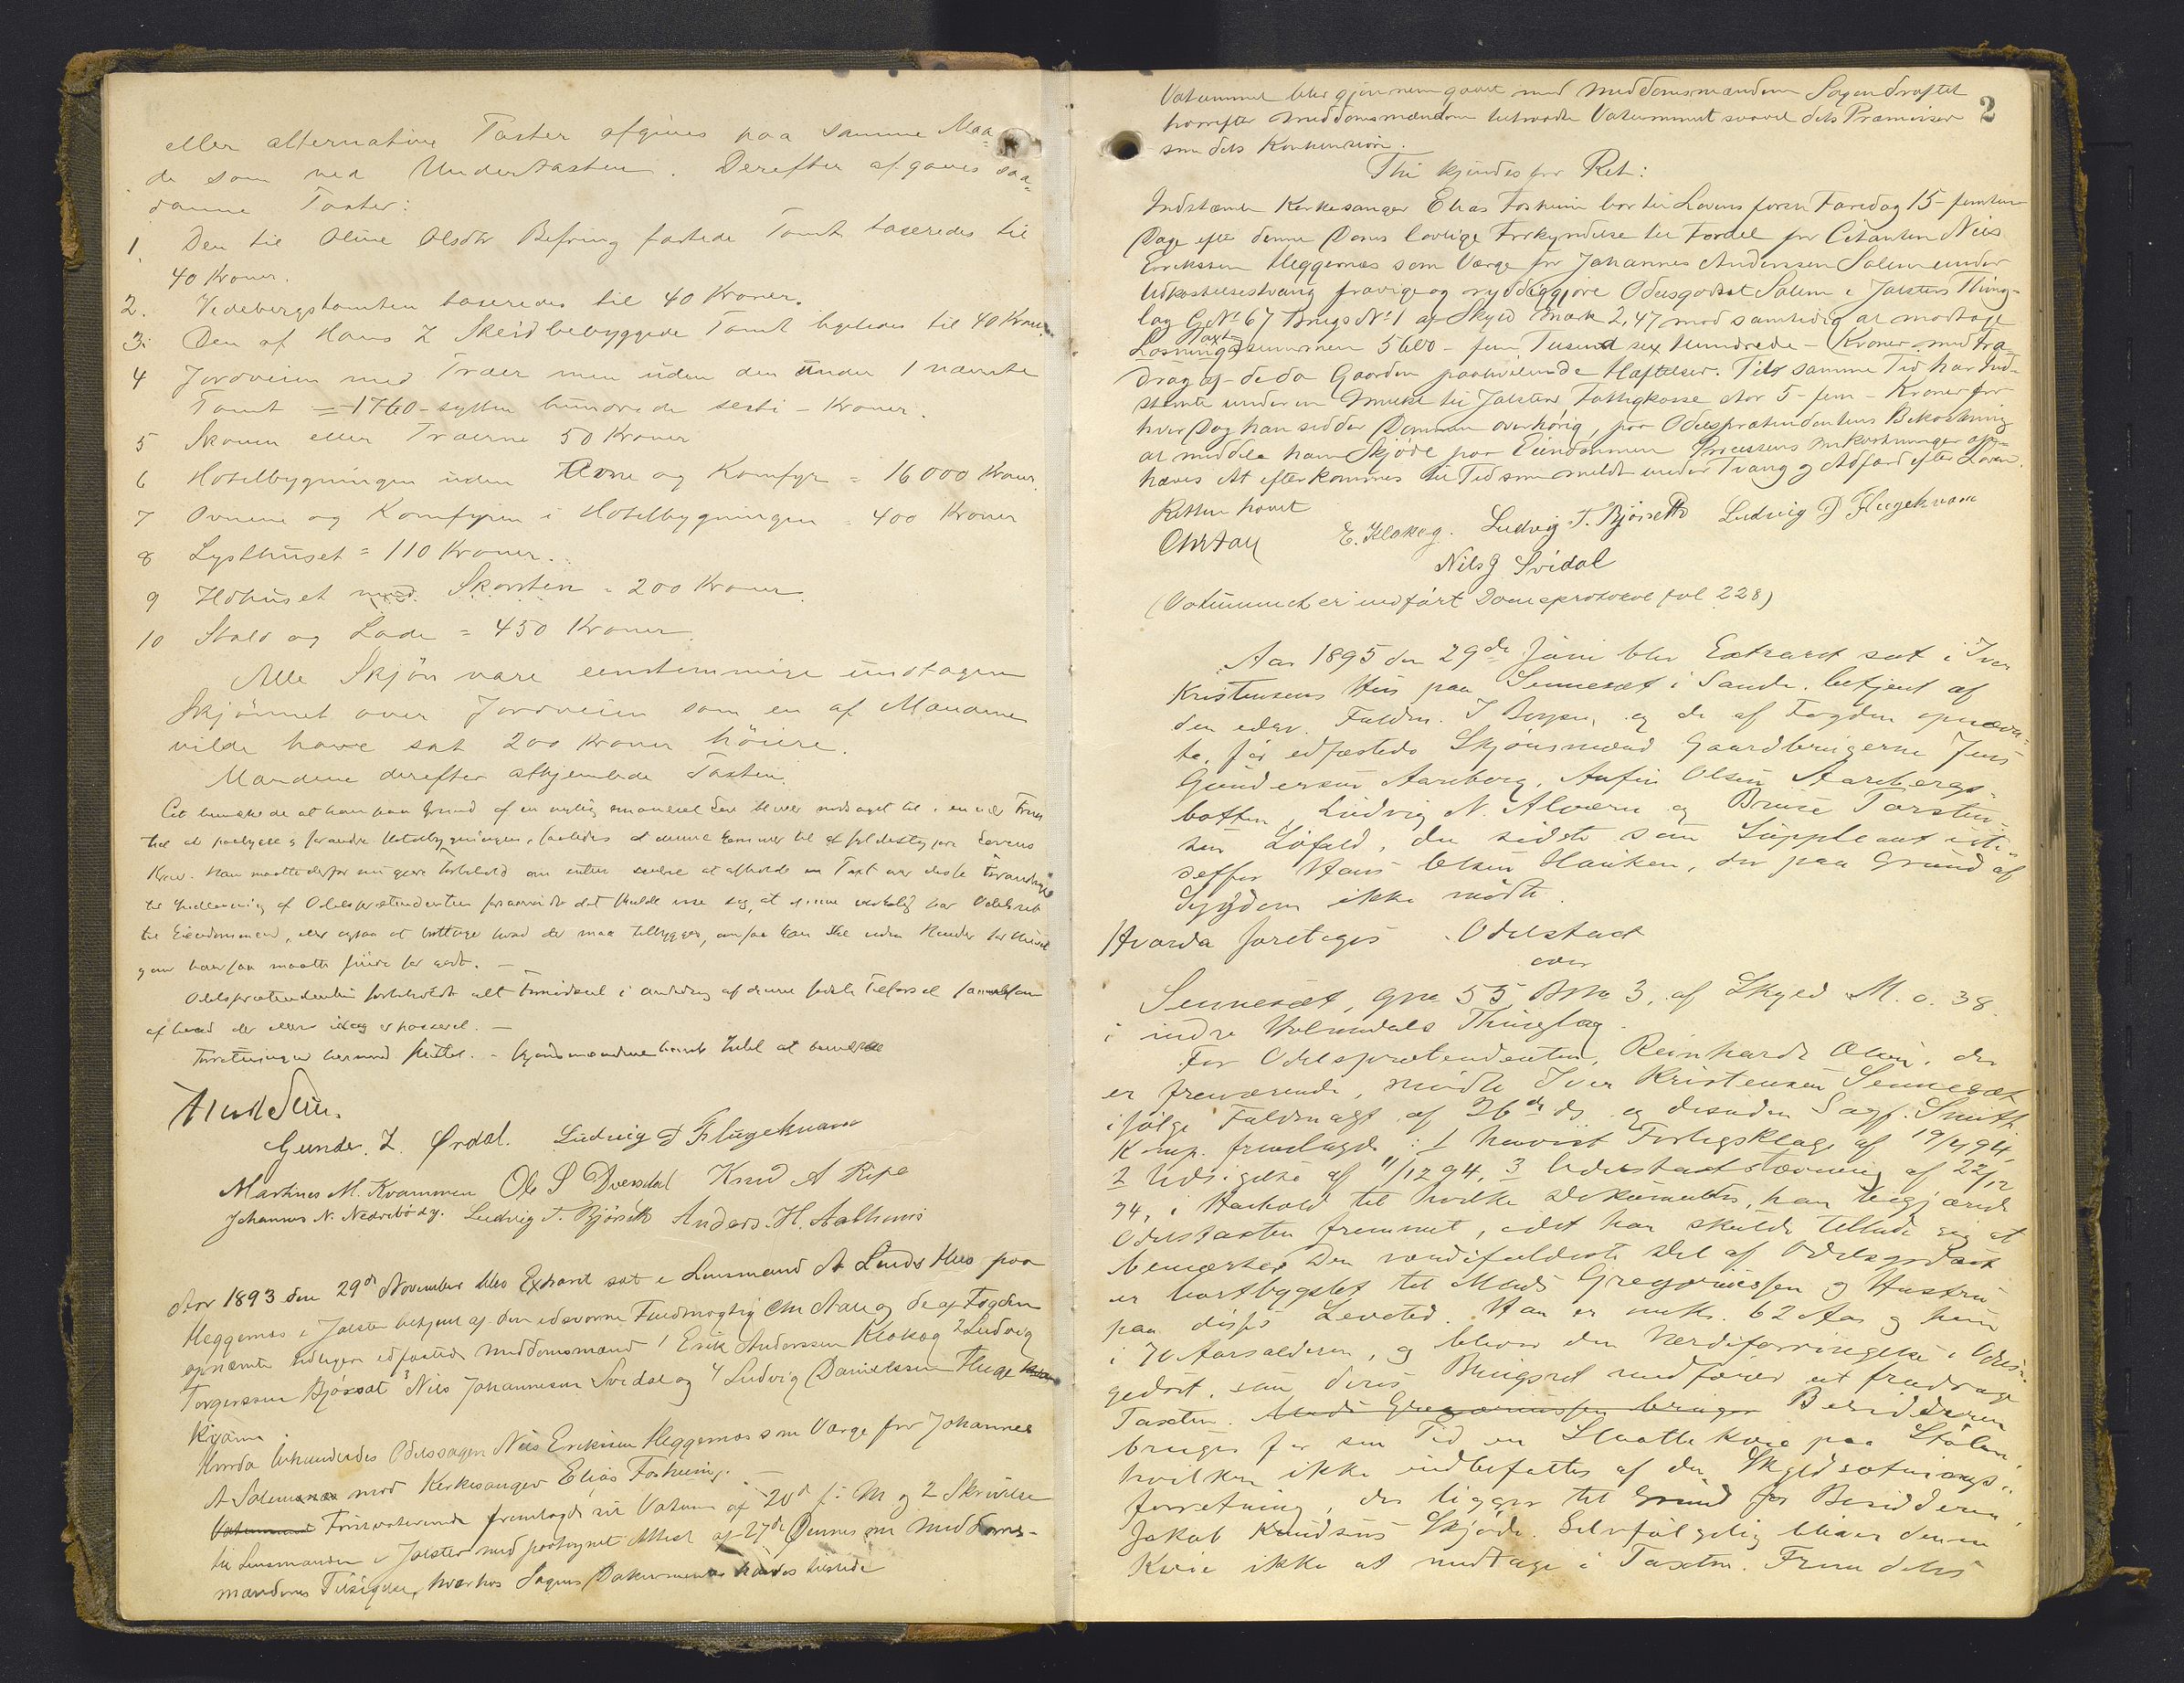 eller alternative Taxter afgives paa samme Maa-
de som ved Undertaxten. Derefter afgaves saa-
danne Taxter:
1 Den til Oline Olsdtr Befring fæstede Tomt taxeredes til
40 Kroner.
2. Vedebergstomten taxeredes til 40 Kroner.
3. Den af Hans Z Skeid bebyggede Tomt ligeledes til 40 Kroner
4 Jordveien med Træer men uden den under 1 nævnte
Tomt = 1760 - sytten hundrede sexti - Kroner.
5 Skoven eller Træerne 50 Kroner
6 Hotelbygningen uden Ovne og Komfyr = 16000 Kroner.
7 Ovnene og Komfyren i Hotelbygningen = 400 Kroner
8 Lysthuset = 110 Kroner.
9 Ildhuset med Skorsten = 200 Kroner
10 Stald og Lade = 450 Kroner
Alle Skjøn vare eenstemmige undtagen
Skjønnet over Jordveien som en af Mændene
vilde have sat 200 Kroner høiere.
Mændene derefter afhjemlede Taxten.
Cit bemærkede at han paa Grund af en
til at paabygge og forandre Hotelbygningen, saaledes at denne kommer til at fyldestgjøre Lovens
Krav. Han maatte derfor nu gjøre Forbehold om enten senere at afholde en Taxt over disse Forandringer
til Indløsning af Odelsprætendenten forsaavidt det skulde vise sig, at denne virkelig har Odelsret
til Eiendommen, eller ogsaa at borttage hvad der maa tilbygges,
Odelsprætendenten forbeholdt alt Fornødent i Anledning af denne sidste Tilførsel
af hvad der ellers idag er passeret. -
Forretningen hermed sluttet. - Skjønsmændene havde Intet at bemærke
Gunder. Z. Ørdal. Ludvig D Flugekvam
Martinus M. Kvammen Ole S Dvergsdal Knud A Ripe
Johannes N. Nedrebö Ludvig T. Bjørsett Anders. H. Aalhus
Aar 1893 den 29de November blev Extraret sat i Lensmand A Lunds Hus paa
Heggernæs i Jølster betjent af den edsvorne Fuldmægtig Chr Aall og de af Fogden
opnævnte tidligere edfæstede Meddomsmænd 1 Erik Anderssen Klokeg 2 Ludvig
Torgerssen Bjørset 3 Nils Johannessen Svidal og 4 Ludvig Danielssen Fluge
kvam.
Hvorda behandledes Odelssagen Nils Eriksen Heggernæs som Værge for Johannes
A Solem mod Kirkesanger Elias Fosheim. -
Førstvoterende fremlagde sit Votum af 20d ds. og 2 Skrivelse
til Lensmanden i Jølster med paategnet Attest af 27de Dennes om Meddoms-
mændenes Tilsigelse, hvorhos Sagens Dokumenter havdes tilstede
2
Votummet blev gjennemgaaet med Meddomsmændene Sagen drøftet
hvorefter Meddomsmændene tiltraadte Votummet saavel dets Præmisser
som dets Konklusion.
Thi kjendes for Ret:
Indstævnte Kirkesanger Elias Fosheim bør til Lovens første Faredag 15 - femten
Dage efter denne Doms lovlige Forkyndelse til Fordel for Citanten Nils
Erikssen Heggernæs som Værge for Johannes Anderssen Solem under
Udkastelsestvang fravige og ryddiggjøre Odelsgodset Solem i Jølsters Thing-
lag G. No 67 Brugs No 1 af Skyld Mark 2,47 mod samtidig at modtage
Taxt
Løsningssummen 5600 - fem Tusend sex Hundrede - Kroner med Fra-
drag af de da Gaarden paahvilende Hæftelser. Til samme Tid bør Ind-
stævnte under en Mulct til Jølsters Fattigkasse stor 5 - fem - Kroner for
hver Dag han sidder Dommen overhørig, paa Odelsprætendentens Bekostning
at meddele ham Skjøde paa Eiendommen Processens Omkostninger op-
hæves At efterkommes til Tid som meldt under Tvang og Adfærd efter Loven.
Retten hævet
Chr Aall E. Klokeg. Ludvig T. Bjørsett Ludvig D Flugekvam
Nils J Svidal
(Votummet er indført Domsprotokol fol 228)
Aar 1895 den 29de Juni blev Extraret sat i Iver
Kristensens Hus paa Sennesæt i Sande, betjent af
den edsv. Fuldm. I Borgen, og de af Fogden opnævn-
te, før edfæstede Skjønsmænd Gaardbrugerne Jens
Gundersen Aarberg, Anfin Olsen Aarbergs-
botten, Ludvig N. Alværn og Bruse Torsten-
sen Løfald, den sidste som Suppleant iste-
detfor Hans Olsen Hauken, der paa Grund af
Sygdom ikke mødte.
Hvorda foretoges Odelstaxt
over
Sennesæt, Gno 55, Bno 3, af Skyld M. 0. 38.
i indre Holmedals Thinglag.
For Odelsprætendenten, Reinhardt Olsen, der
er fraværende, mødte Iver Kristensen Sennesæt
ifølge Fuldmagt af 26de ds og desuden Sagf. Smith
Kemp. fremlagde: 1 hævet Forligsklage af 19/4 94,
2 Udsigelse af 11/12 94, 3 Odelstaxtstævning af 22/12
94, i Henhold til hvilke Dokumenter, han begjærede
Odelstaxten fremmet, idet han skulde tillade sig at
bemærke: Den værdifuldeste Del af Odelsgodset
er bortbygslet til Mads Gregoriussen og Hustru
paa disses Levetid. Han er nemlig. 62 Aar og hun
i 70 Aarsalderen, og bliver den Værdiforringelse i Odels-
godset, som deres Brugsret medfører at fradrage
Taxten. Mads Gregoriussen bruger Besidderen
bruger for sin Tid en Slaatte Kvie paa Stølen,
hvilken ikke indbefattes af den Skyldsætnings-
forretning, der ligger til Grund for Besidderen
Jakob Knudsens Skjøde. Selvfølgelig bliver denne
Kvie ikke at medtage i Taxten. Fremdeles